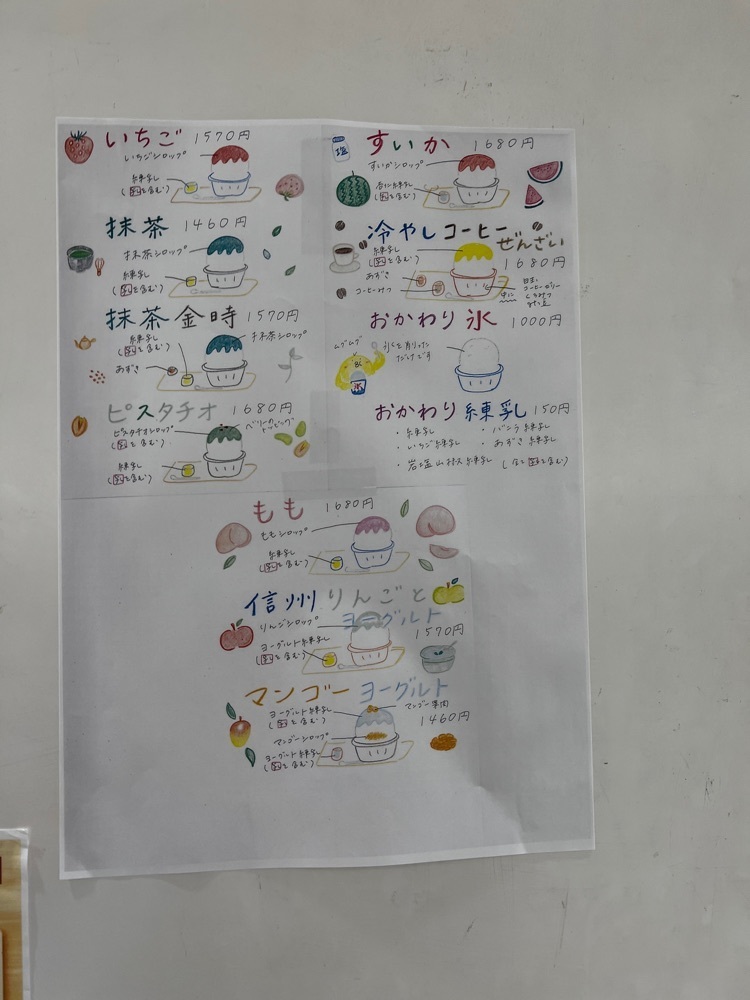 いちご 1570円
いちごシロップ
練乳
(乳を含む)
抹茶 1460円
抹茶シロップ
練乳
(乳を含む)
抹茶金時 1570円
練乳
(乳を含む)
抹茶シロップ
あずき
ピスタチオ 1680円
ピスタチオシロップ
(乳を含む)
ベリーの
トッピング
練乳
(乳を含む)
塩
すいか 1680円
すいかシロップ
杏仁練乳
(乳を含む)
冷やしコーヒー
ぜんざい
1680円
練乳
(乳を含む)
あずき
コーヒーみつ
中に
白玉
コーヒーゼリー
おかわり氷 1000円
氷を削った
だけです
氷
おかわり練乳 150円
・練乳
・バニラ練乳
・いちご練乳
・あずき練乳
・岩塩 練乳
(全て乳を含む)
もも 1680円
ももシロップ
練乳
(乳を含む)
信州りんごと
ヨーグルト
1570円
りんごシロップ
ヨーグルト練乳
(乳を含む)
マンゴーヨーグルト
1460円
ヨーグルト練乳
(乳を含む)
マンゴー果肉
マンゴーシロップ
ヨーグルト練乳
(乳を含む)